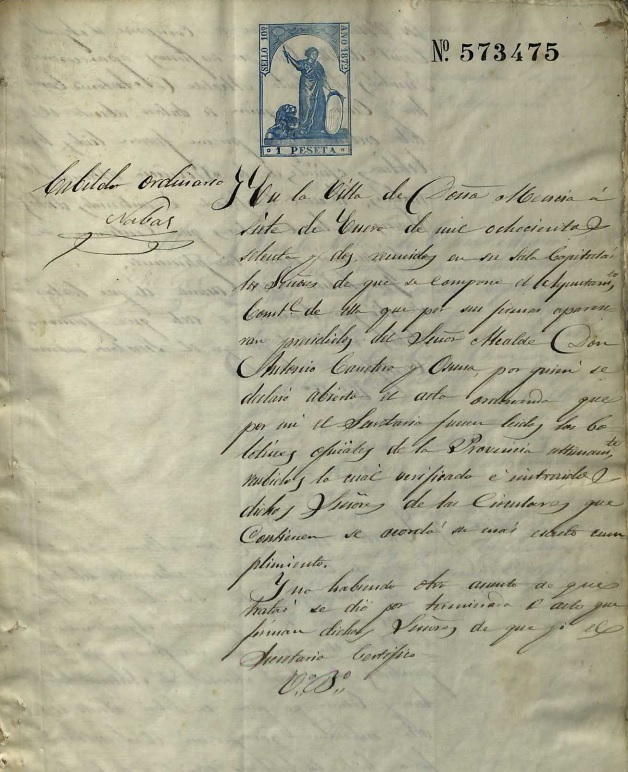 SELLO 10º
AÑO 1872
1 PESETA
Nº 573475
Cabildo ordinario
En la Villa de Doña Mencia á
siete de Enero de mil ochocientos
setenta y dos, reunidos en su Sala Capitular
los Señores de que se compone el Ayuntamto
Constl de ella que por sus firmas aparece
ran presididos del Señor Alcalde Don
Antonio y Osuna por quien se
declaró abierto el acto ordenando que
por mi el Secretario fueran leidos los bo
letines oficiales de la Provincia ultimamte
recibidos lo cual verificado é instruidos
dichos Señores de las Circulares que
contienen se acordó su mas exacto cum
plimiento.
Y no habiendo otro asunto de que
tratar se dió por terminado el acto que
firman dichos Señores de que yo el
Secretario Certifico
Vº Bº